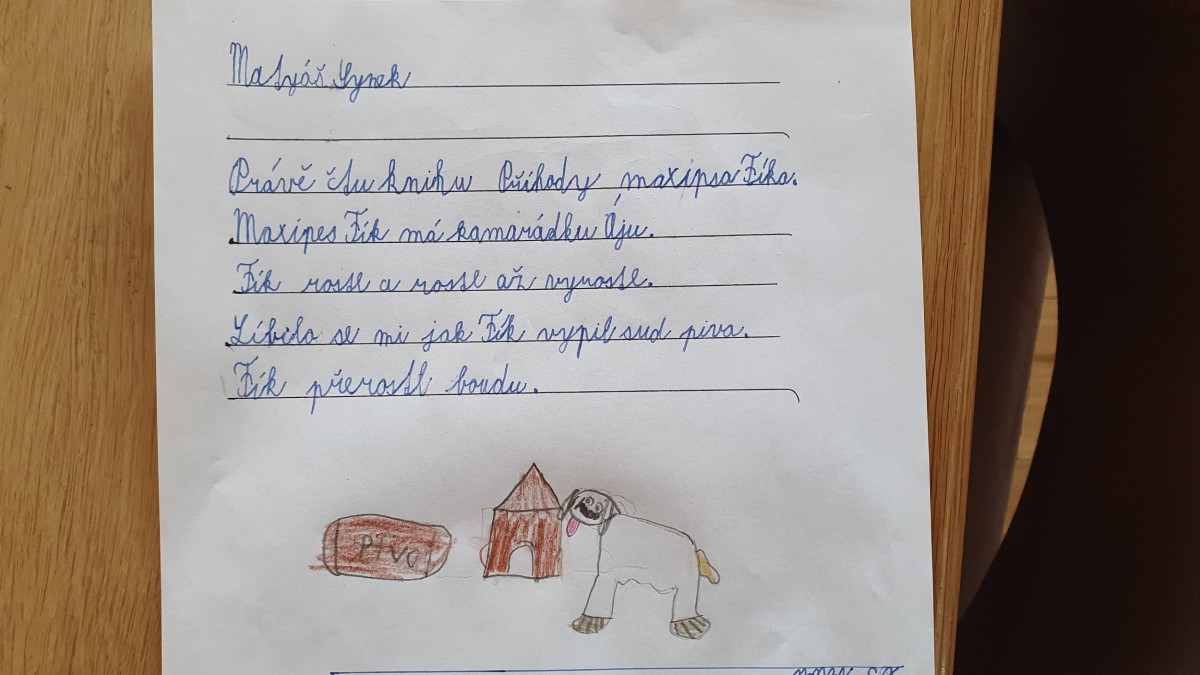 Matyáš Synek
Právě čtu knihu Příhody maxipsa Fíka.
Maxipes Fík má kamarádku Áju.
Fík rostl a rostl až vyrostl.
Líbilo se mi jak Fík vypil sud piva.
Fík přerostl boudu.
PIVO